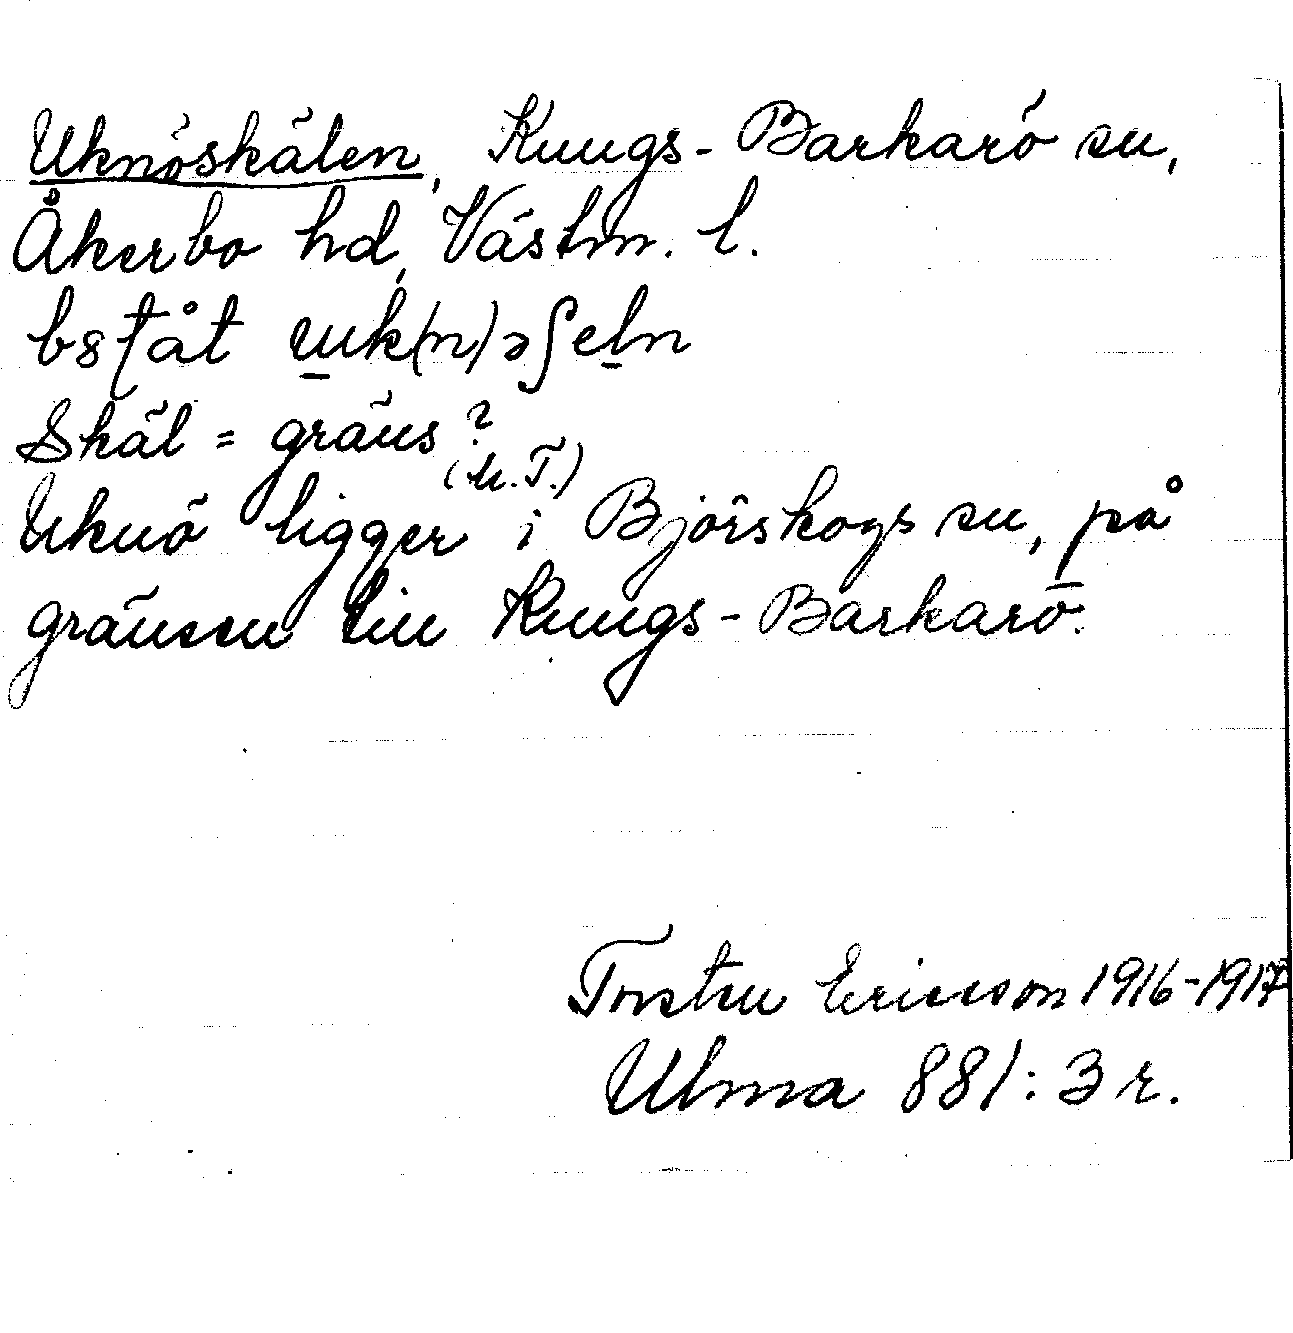 Uknöskälen, Kungs-Barkarö sn,
Åkerbo hd, Västm. l.
bs. t. åt ɯk(n)əʃeln
Skäl = gräns?
(M.T.)
Uknö ligger i Björskogs sn, på
gränsen till Kungs-Barkarö.
Torsten Ericsson 1916-1917
Ulma 881:3 r.